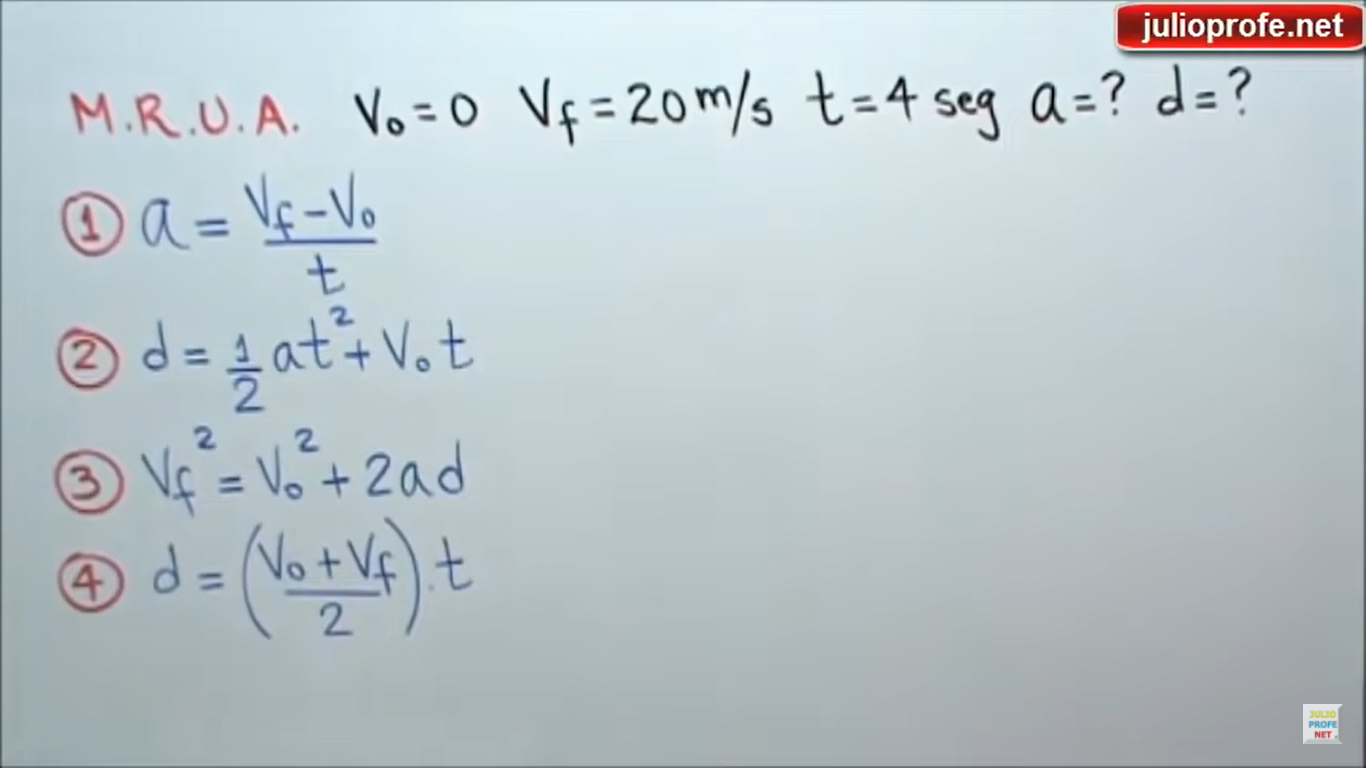 julioprofe.net
M.R.U.A. V₀=0 Vf=20m/s t=4 seg a=? d=?
① a = (Vf-V₀)/t
② d = 1/2 at² + V₀t
③ Vf² = V₀² + 2ad
④ d = ((V₀+Vf)/2).t
JULIO
PROFE
NET